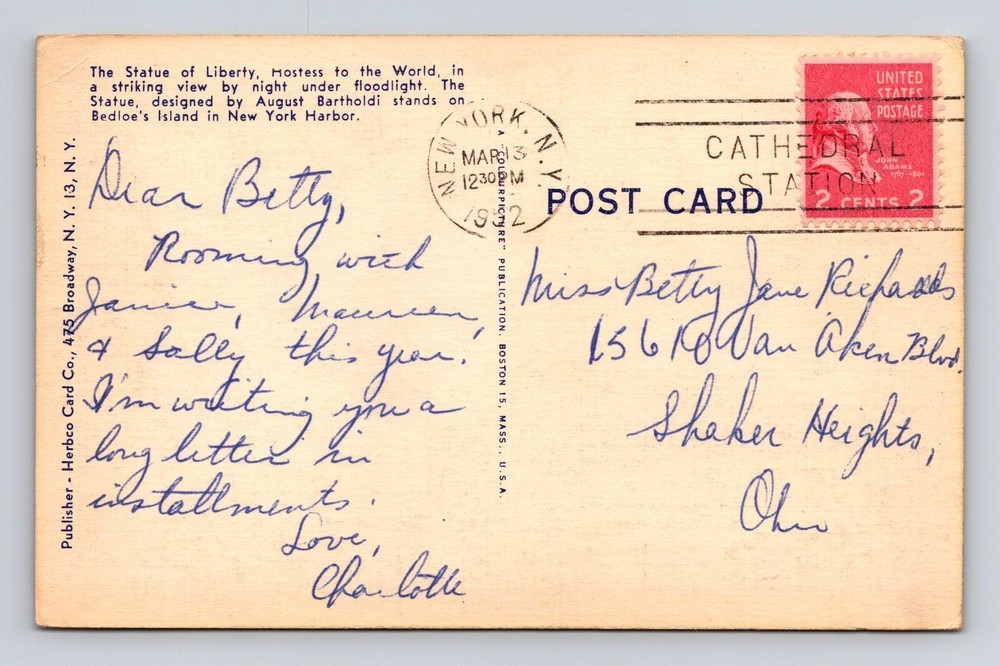 The Statue of Liberty, Hostess to the World, in
a striking view by night under floodlight. The
Statue, designed by August Bartholdi stands on
Bedloe's Island in New York Harbor.
Dear Betty,
Rooming with
Janice, Maureen,
& Sally this year.
I'm writing you a
long letter in
installments.
Love,
Charlotte
Publisher - Herbco Card Co., 475 Broadway, N. Y. 13, N. Y.
A "COLOURPICTURE" PUBLICATION, BOSTON 15, MASS., U.S.A.
NEW YORK, N.Y.
MAR 13
12 30 PM
1952
CATHEDRAL
STATION
UNITED
STATES
POSTAGE
JOHN
ADAMS
1797-1801
2 CENTS 2
POST CARD
Miss Betty Jane Richards
15610 Van Aken Blvd.
Shaker Heights,
Ohio